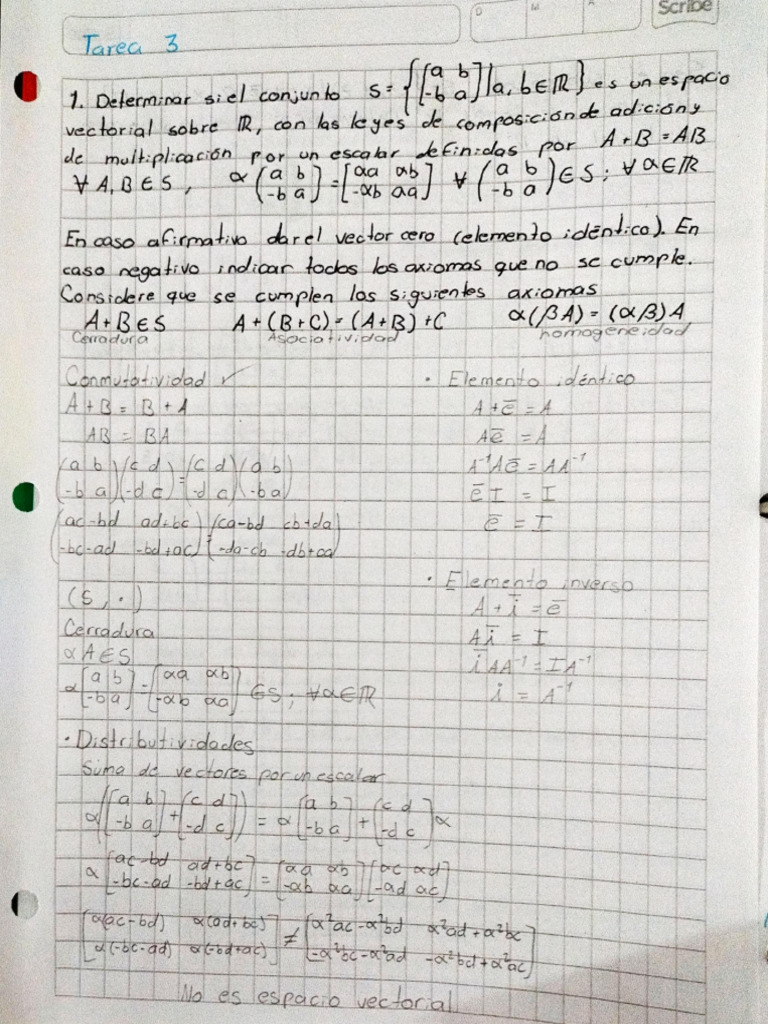 Scribe
D M A
Tarea 3
1. Determinar si el conjunto S = {[a b; -b a] | a, b ∈ ℝ} es un espacio
vectorial sobre ℝ, con las leyes de composición de adición y
de multiplicación por un escalar definidas por A + B = AB
∀ A, B ∈ S, α(a b; -b a) = [αa αb; -αb αa] ∀ (a b; -b a) ∈ S; ∀ α ∈ ℝ
En caso afirmativo dar el vector cero (elemento idéntico). En
caso negativo indicar todos los axiomas que no se cumple.
Considere que se cumplen los siguientes axiomas
A + B ∈ S A + (B + C) = (A + B) + C α(βA) = (αβ)A
Cerradura Asociatividad homogeneidad
Conmutatividad ✓
A + B = B + A
AB = BA
(a b; -b a)(c d; -d c) = (c d; -d c)(a b; -b a)
(ac-bd ad+bc; -bc-ad -bd+ac) = (ca-bd cb+da; -da-cb -db+ca)
(S, ·)
Cerradura
αA ∈ S
α[a b; -b a] = [αa αb; -αb αa] ∈ S; ∀ α ∈ ℝ
· Elemento idéntico
A + ē = A
Aē = A
A⁻¹Aē = AA⁻¹
ēI = I
ē = I
· Elemento inverso
A + ī = ē
Aī = I
īAA⁻¹ = IA⁻¹
i = A⁻¹
· Distributividades
Suma de vectores por un escalar
α([a b; -b a] + [c d; -d c]) = α[a b; -b a] + [c d; -d c]α
α[ac-bd ad+bc; -bc-ad -bd+ac] = [αa αb; -αb αa][αc αd; -αd αc]
[α(ac-bd) α(ad+bc); α(-bc-ad) α(-bd+ac)] ≠ [α²ac-α²bd α²ad+α²bc; -α²bc-α²ad -α²bd+α²ac]
No es espacio vectorial